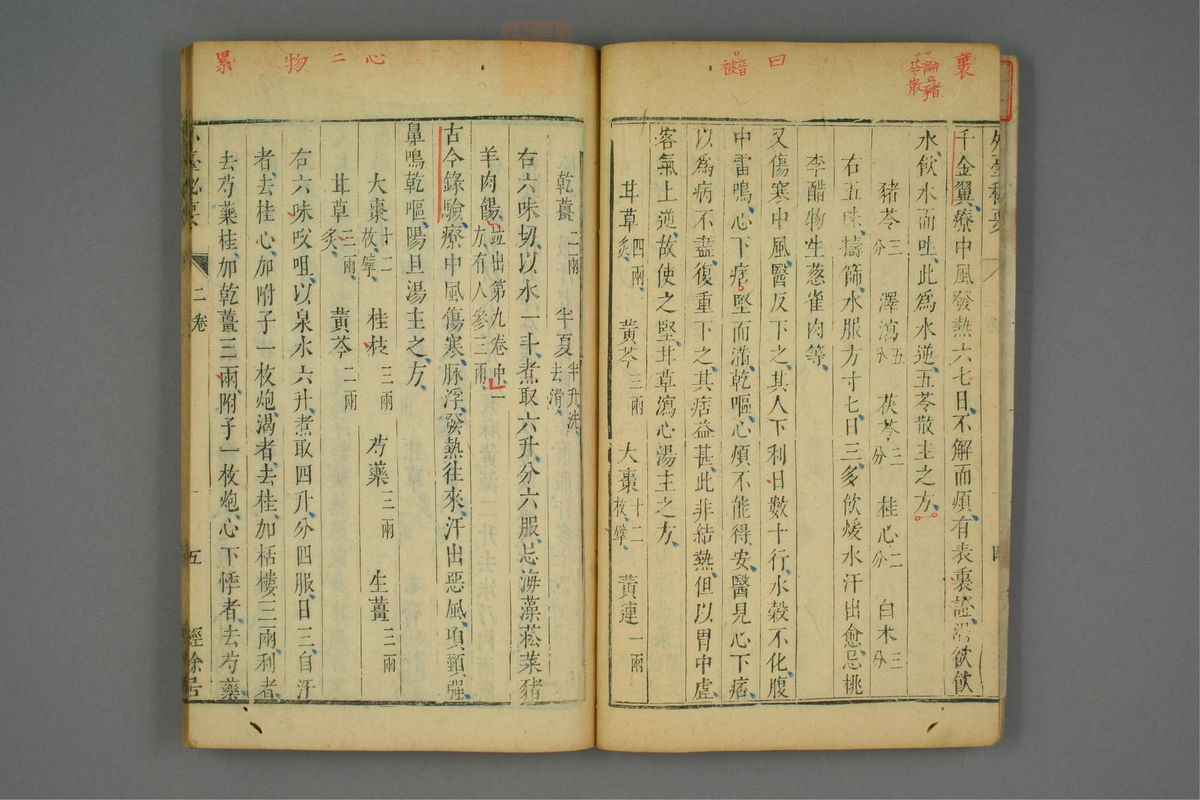 裏
論云猪
苓散
曰
音
被
千金翼療中風發熱六七日不解而煩有表裏證渴欲飲
水飲水而吐此爲水逆五苓散主之方
豬苓三分 澤瀉五分 茯苓三分 桂心二分 白朮三分
右五味擣篩水服方寸匕日三多飲煖水汗出愈忌桃
李醋物生葱雀肉等
又傷寒中風醫反下之其人下利日數十行水穀不化腹
中雷鳴心下痞堅而滿乾嘔心煩不能得安醫見心下痞
以爲病不盡復重下之其痞益甚此非結熱但以胃中虛
客氣上逆故使之堅甘草瀉心湯主之方
甘草四兩炙 黃芩三兩 大棗十二枚擘 黃連一兩
心 二 物 累
乾薑二兩 半夏半升洗去滑
右六味切以水一斗煮取六升分六服忌海藻菘菜豬
羊肉餳並出第九卷中一方有人參三兩
古今錄驗療中風傷寒脉浮發熱往來汗出惡風項頸强
鼻鳴乾嘔陽旦湯主之方
大棗十二枚擘 桂枝三兩 芍藥三兩 生薑三兩
甘草三兩炙 黃芩二兩
右六味㕮咀以泉水六升煮取四升分四服日三自汗
者去桂心加附子一枚炮渴者去桂加栝樓三兩利者
去芍藥桂加乾薑三兩附子一枚炮心下悸者去芍藥
二卷 五 經餘居